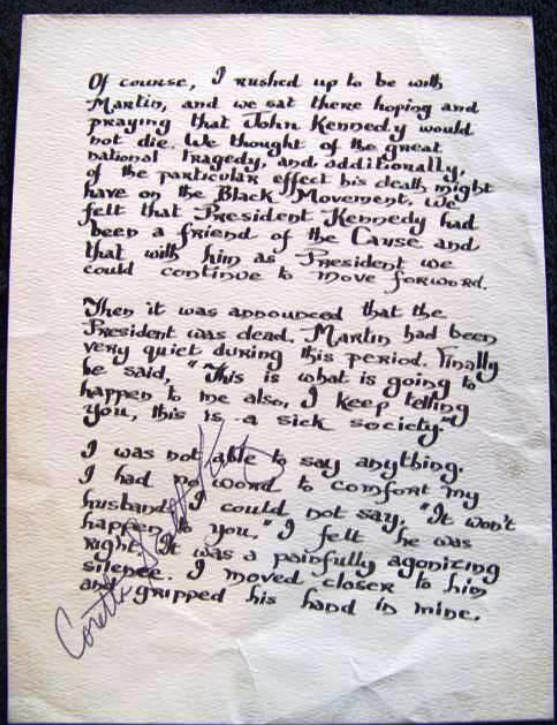 Of course, I rushed up to be with
Martin, and we sat there hoping and
praying that John Kennedy would
not die. We thought of the great
national tragedy, and additionally,
of the particular effect his death might
have on the Black Movement. We
felt that President Kennedy had
been a friend of the Cause and
that with him as President we
could continue to move forword.
Then it was announced that the
President was dead. Martin had been
very quiet during this period. Finally
he said, "This is what is going to
happen to me also, I keep telling
you, this is a sick society."
I was not able to say anything.
I had no word to comfort my
husband. I could not say, "It won't
happen to you." I felt he was
right. It was a painfully agonizing
silence. I moved closer to him
and gripped his hand in mine.
Coretta Scott King